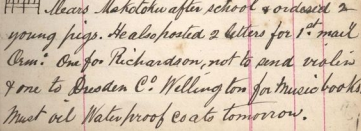 Mears Makotoku after school & ordered 2
young pigs. He also posted 2 letters for 1st mail
One for Richardson, not to send violin
& one to Dresden Co. Wellington for Music books.
Must oil Waterproof Coats tomorrow.